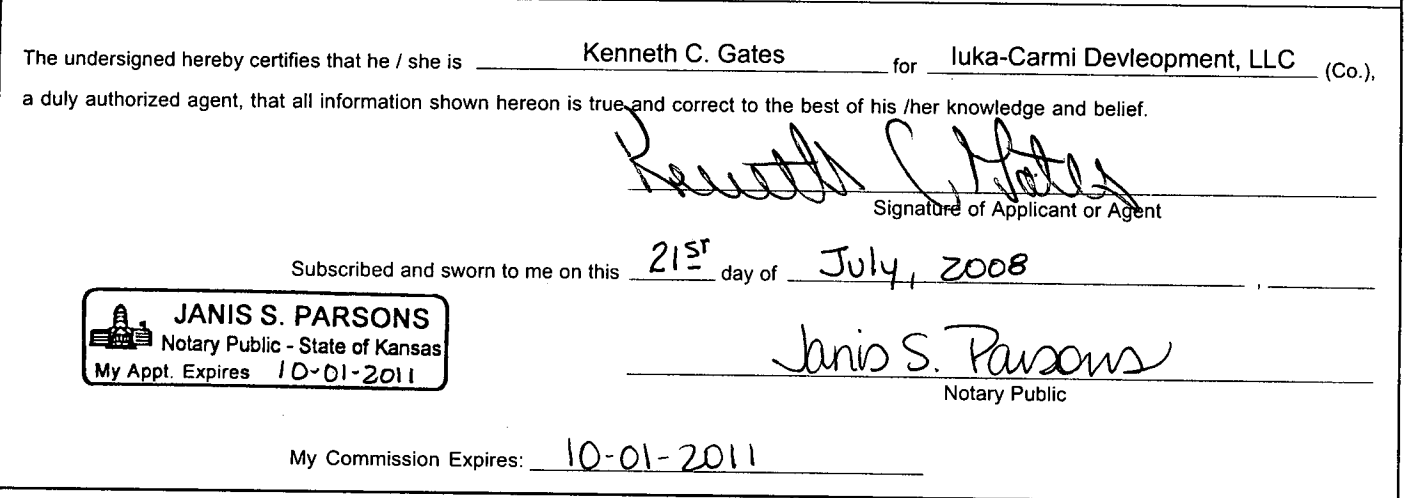 The undersigned hereby certifies that he / she is Kenneth C. Gates for Iuka-Carmi Devleopment, LLC (Co.),
a duly authorized agent, that all information shown hereon is true and correct to the best of his /her knowledge and belief.
Kenneth C. Gates
Signature of Applicant or Agent
Subscribed and sworn to me on this 21st day of July, 2008 ,
JANIS S. PARSONS
Notary Public - State of Kansas
My Appt. Expires 10-01-2011
Janis S. Parsons
Notary Public
My Commission Expires: 10-01-2011